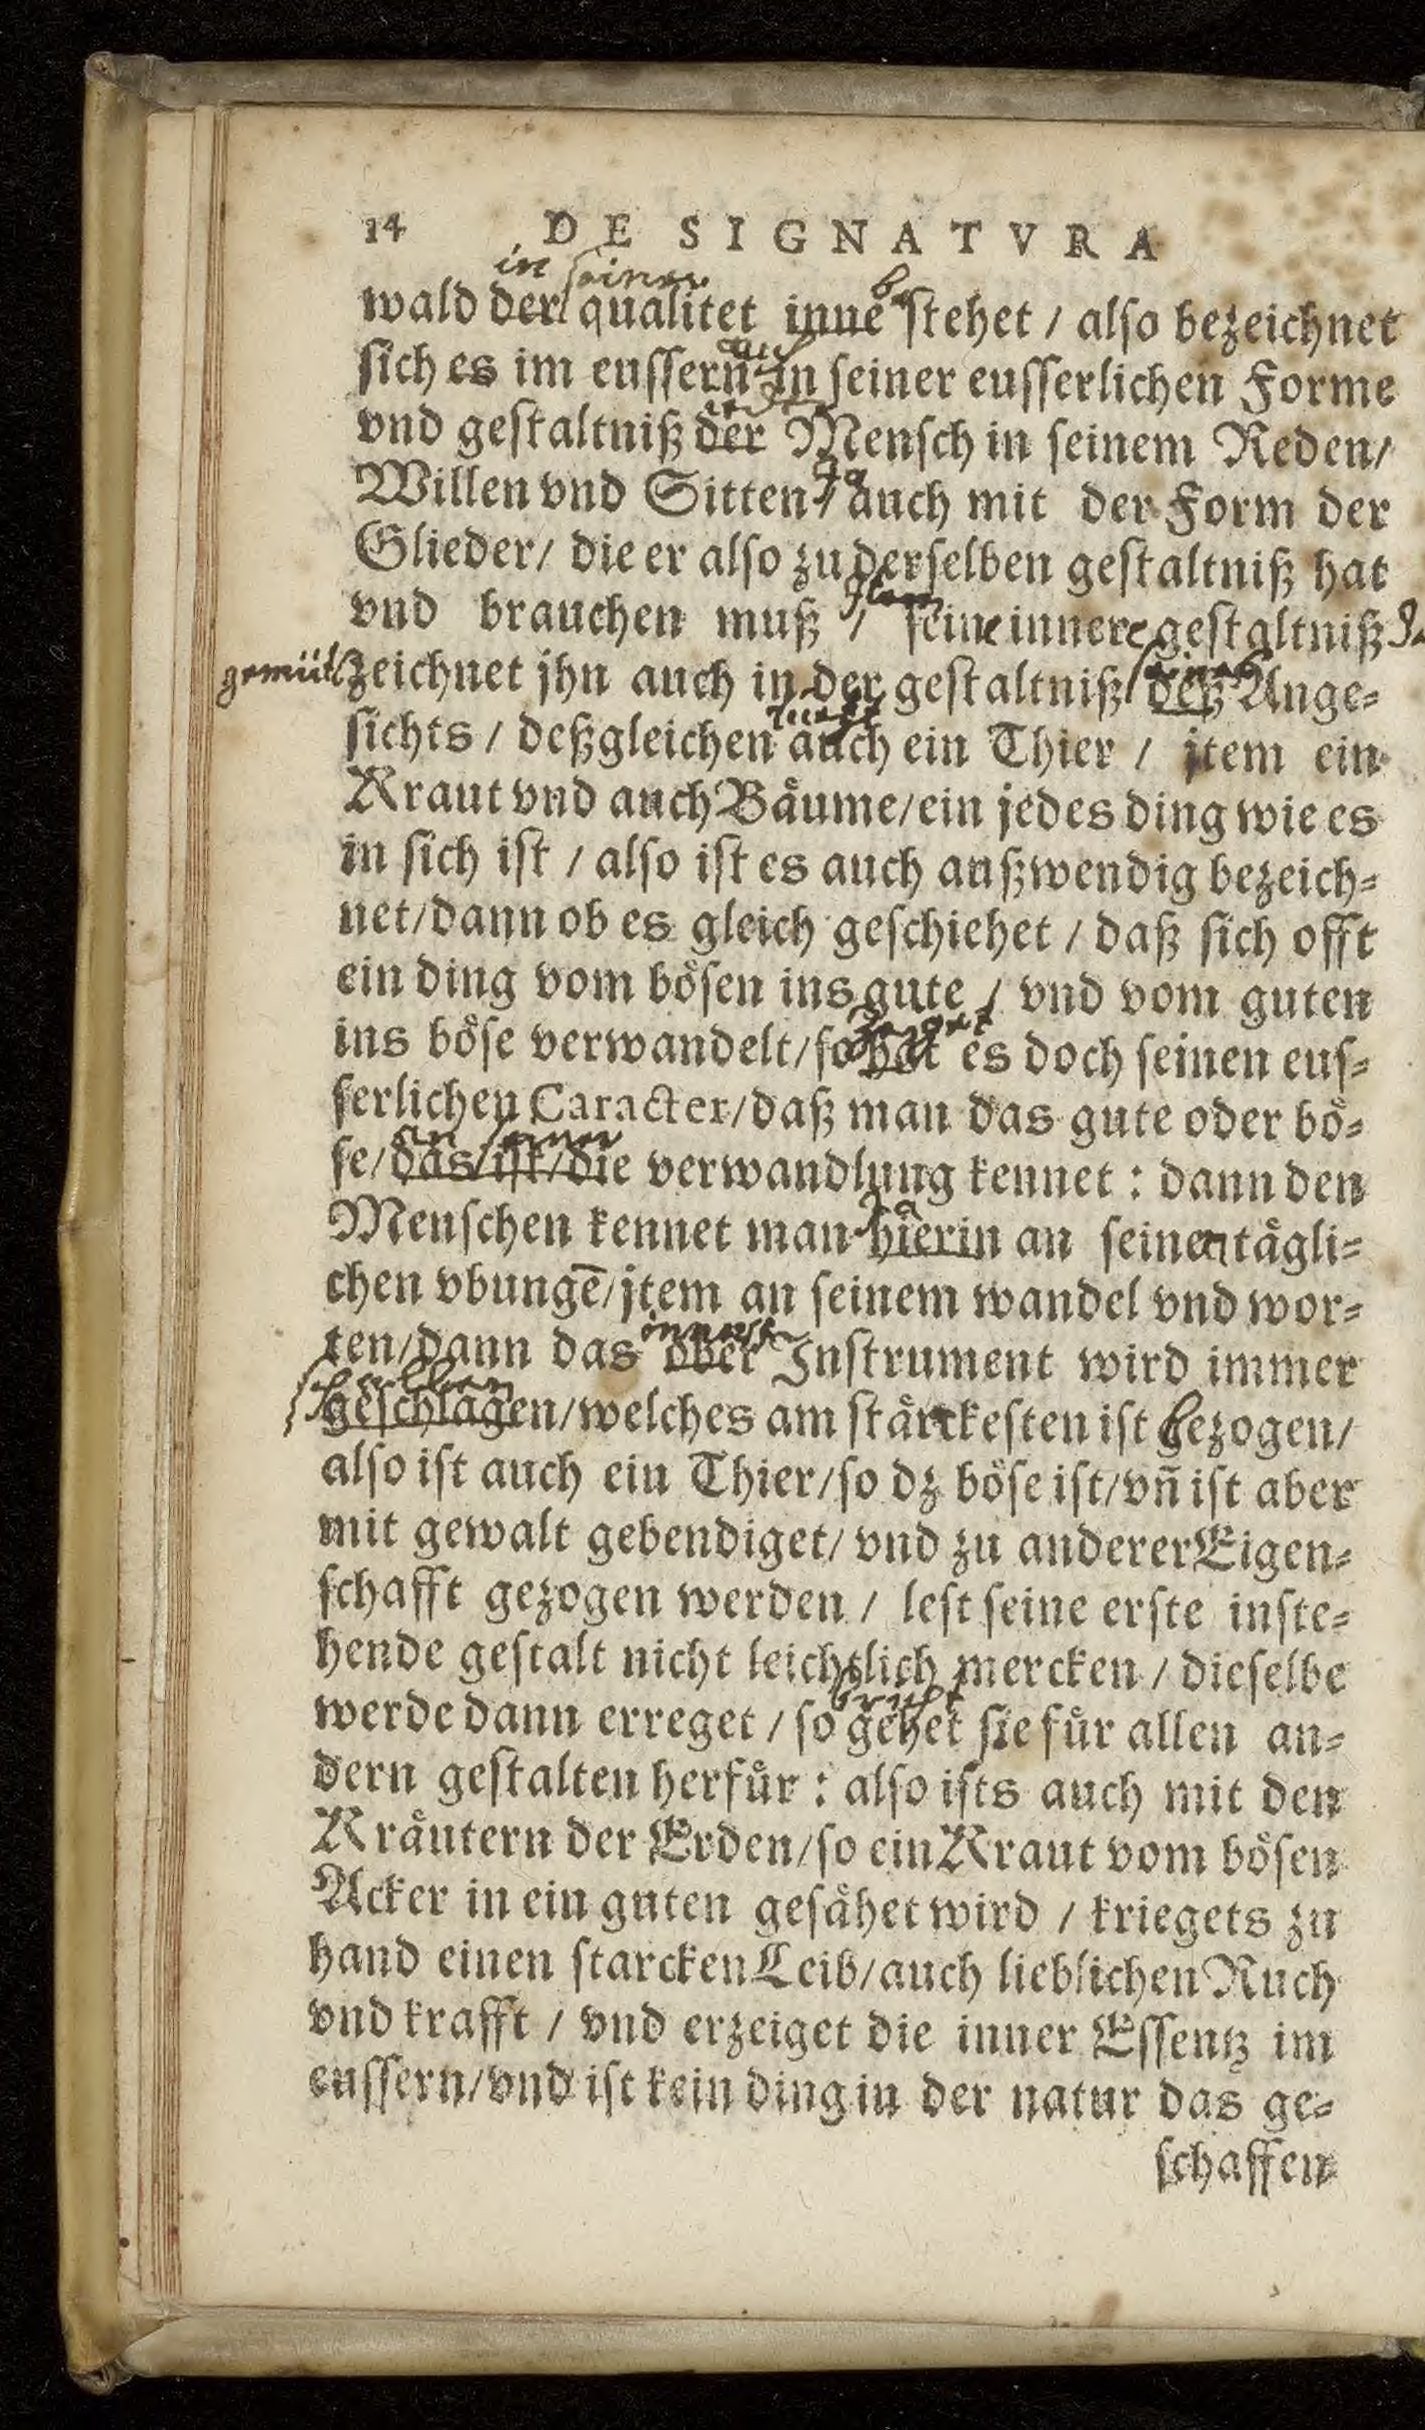 14 DE SIGNATVRA
in seiner
wald der qualitet inne stehet / also bezeichnet
sich es im eussern in seiner eusserlichen Forme
vnd gestaltniß der Mensch in seinem Reden/
Willen vnd Sitten / auch mit der Form der
Glieder/ die er also zu derselben gestaltniß hat
vnd brauchen muß / seine innere gestaltniß
zeichnet jhn auch in der gestaltniß deß Ange⸗
seines
sichts / deßgleichen auch ein Thier / jtem ein
Kraut vnd auch Bäume/ein jedes ding wie es
in sich ist / also ist es auch außwendig bezeich⸗
net/dann ob es gleich geschiehet / daß sich offt
ein ding vom bösen ins gute / vnd vom guten
ins böse verwandelt/so hat es doch seinen eus⸗
serlichen Caracter/daß man das gute oder bö⸗
an seiner
se/das/ist/die verwandlung kennet : dann den
Menschen kennet man hierin an seinen tägli⸗
chen vbungē/jtem an seinem wandel vnd wor⸗
ten/dann das ober Instrument wird immer
geschlagen/welches am stärckesten ist bezogen/
also ist auch ein Thier/so dz böse ist/vñ ist aber
mit gewalt gebendiget/ vnd zu anderer Eigen⸗
schafft gezogen werden / lest seine erste inste⸗
hende gestalt nicht leichtlich mercken / dieselbe
bricht
werde dann erreget / so gehet sie für allen an⸗
dern gestalten herfür : also ists auch mit den
Kräutern der Erden/so ein Kraut vom bösen
Acker in ein guten gesähet wird / kriegets zu
hand einen starcken Leib/auch lieblichen Ruch
vnd krafft / vnd erzeiget die inner Essentz im
eussern/vnd ist kein ding in der natur das ge⸗
schaffen